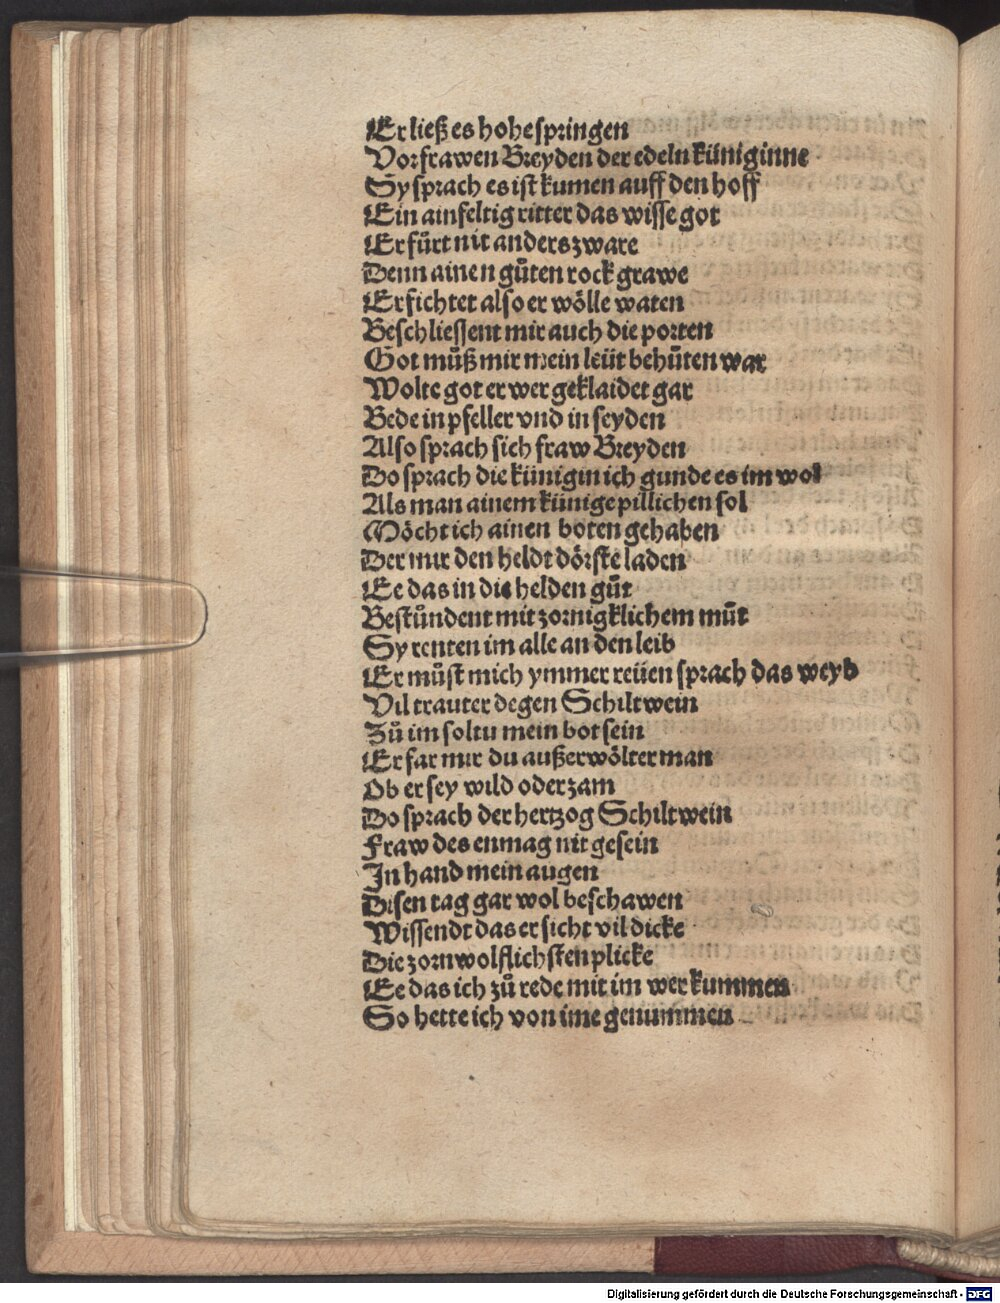 Er ließ es hohe springen
Vor frawen Breyden der edeln küniginne
Sy sprach es ist kumen auff den hoff
Ein ainfeltig ritter das wisse got
Er fürt nit anders zware
Denn ainen gůten rock grawe
Er fichtet also er wölle waten
Beschliessent mir auch die porten
Got můß mir mein leüt behůten war
Wolte got er wer geklaidet gar
Bede in pfeller vnd in seyden
Also sprach sich fraw Breyden
Do sprach die künigin ich gunde es im wol
Als man ainem künige pillichen sol
Möcht ich ainen boten gehaben
Der mir den heldt dörste laden
Ee das in die helden gůt
Bestůndent mit zornigklichem můt
Sy renten im alle an den leib
Er můst mich ymmer reüen sprach das weyb
Vil trauter degen Schiltwein
Zů im soltu mein bot sein
Er far mir du außerwölter man
Ob er sey wild oder zam
Do sprach der hertzog Schiltwein
Fraw des enmag nit gesein
In hand mein augen
Disen tag gar wol beschawen
Wissendt das er sicht vil dicke
Die zorn wolflichsten plicke
Ee das ich zů rede mit im wer kummen
So hette ich von ime genummen
Digitalisierung gefördert durch die Deutsche Forschungsgemeinschaft - DFG